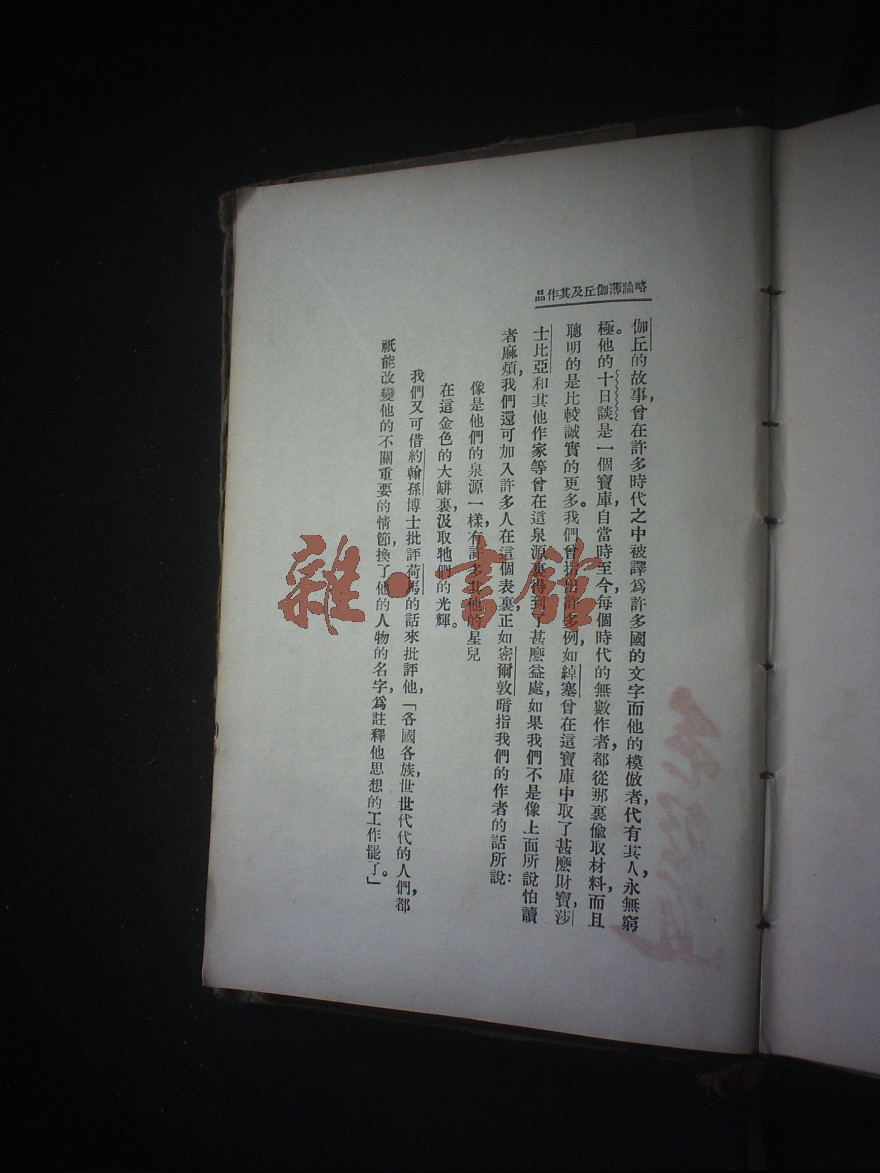 略論薄伽丘及其作品
伽丘的故事,曾在許多時代之中被譯爲許多國的文字而他的模倣者,代有其人,永無窮
極。他的十日談是一個寶庫,自當時至今,每個時代的無數作者,都從那裏偸取材料,而且
聰明的是比較誠實的更多。我們曾指出許多例,如綽塞曾在這寶庫中取了甚麽財寶,莎
士比亞和其他作家等曾在這泉源裏得到了甚麽益處,如果我們不是像上面所說怕讀
者麻煩,我們還可加入許多人在這個表裏,正如密爾敦暗指我們的作者的話所說:
像是他們的泉源一樣,有許多其他的星兒
在這金色的大缾裏,汲取牠們的光輝。
我們又可借約翰孫博士批評荷馬的話來批評他,「各國各族,世世代代的人們,都
祇能改變他的不關重要的情節,換了他的人物的名字,爲註釋他思想的工作罷了。」
雜·書館